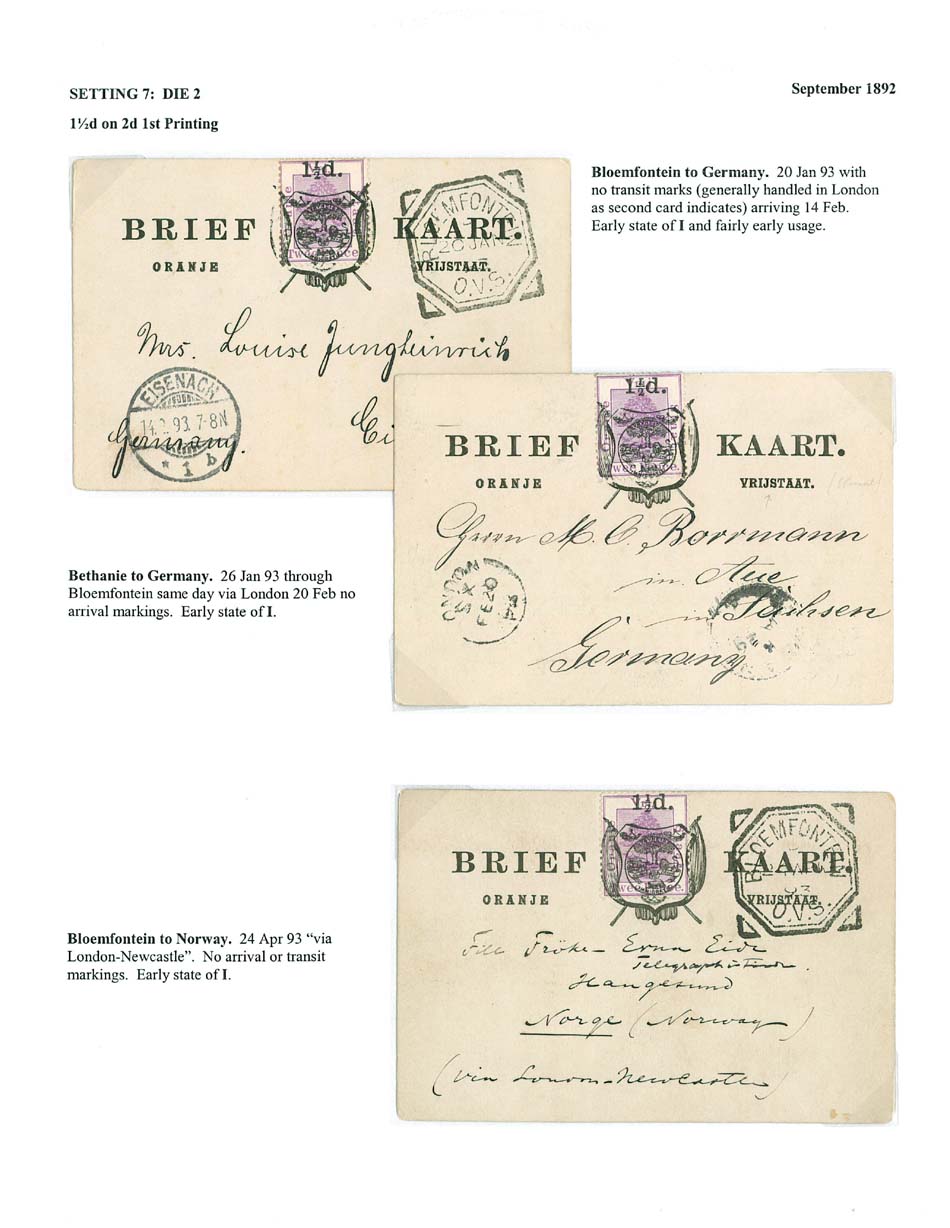 SETTING 7: DIE 2
September 1892
1½d on 2d 1st Printing
Bloemfontein to Germany. 20 Jan 93 with
no transit marks (generally handled in London
as second card indicates) arriving 14 Feb.
Early state of I and fairly early usage.
1½d.
BRIEF KAART.
ORANJE VRIJSTAAT.
BLOEMFONTEIN
20 JAN
O.V.S.
Mrs. Louise Jungheinrich
EISENACH
14.2.93.7-8N
* 1 b
Germany.
Ei
1½d.
BRIEF KAART.
ORANJE VRIJSTAAT.
Herrn M. C. Borrmann
in Aue
in Sachsen
Germany
LONDON
FE 20
Bethanie to Germany. 26 Jan 93 through
Bloemfontein same day via London 20 Feb no
arrival markings. Early state of I.
1½d.
BRIEF KAART.
ORANJE VRIJSTAAT.
BLOEMFONTEIN
93
O.V.S.
Bloemfontein to Norway. 24 Apr 93 “via
London-Newcastle”. No arrival or transit
markings. Early state of I.
Fröken Erna Eide
Haugesund
Norge (Norway)
(via London-Newcastle)